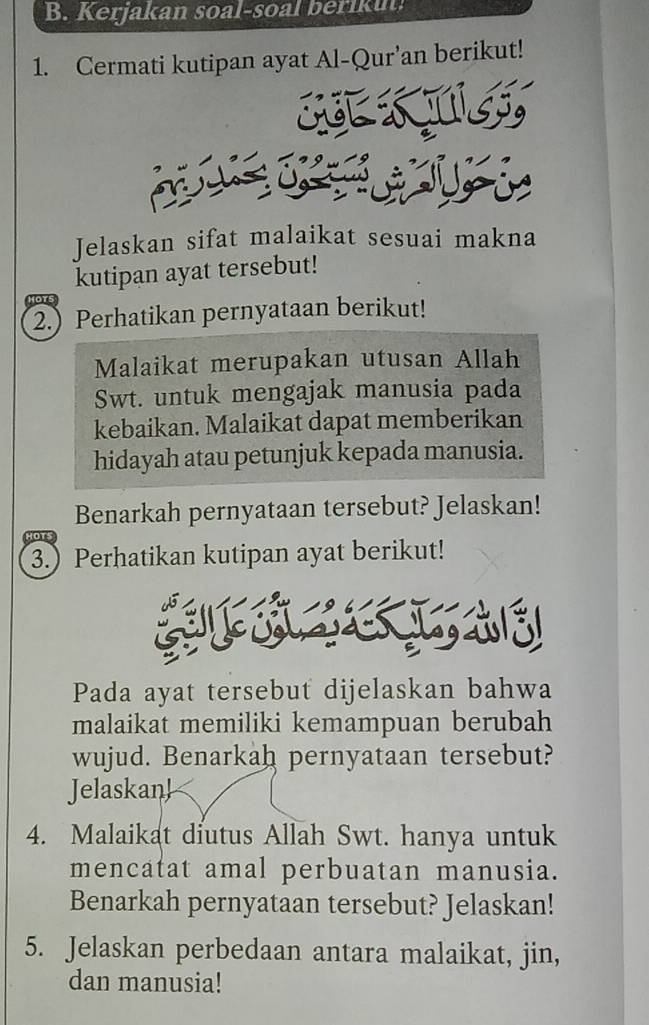 B. Kerjakan soal-soal berikut!
1. Cermati kutipan ayat Al-Qur'an berikut!
وَتَرَى الْمَلٰۤىِٕكَةَ حَاۤفِّيْنَ
مِنْ حَوْلِ الْعَرْشِ يُسَبِّحُوْنَ بِحَمْدِ رَبِّهِمْۚ
Jelaskan sifat malaikat sesuai makna
kutipan ayat tersebut!
HOTS
2. Perhatikan pernyataan berikut!
Malaikat merupakan utusan Allah
Swt. untuk mengajak manusia pada
kebaikan. Malaikat dapat memberikan
hidayah atau petunjuk kepada manusia.
Benarkah pernyataan tersebut? Jelaskan!
HOTS
3. Perhatikan kutipan ayat berikut!
اِنَّ اللّٰهَ وَمَلٰۤىِٕكَتَهٗ يُصَلُّوْنَ عَلَى النَّبِيِّۗ
Pada ayat tersebut dijelaskan bahwa
malaikat memiliki kemampuan berubah
wujud. Benarkah pernyataan tersebut?
Jelaskan!
4. Malaikat diutus Allah Swt. hanya untuk
mencatat amal perbuatan manusia.
Benarkah pernyataan tersebut? Jelaskan!
5. Jelaskan perbedaan antara malaikat, jin,
dan manusia!